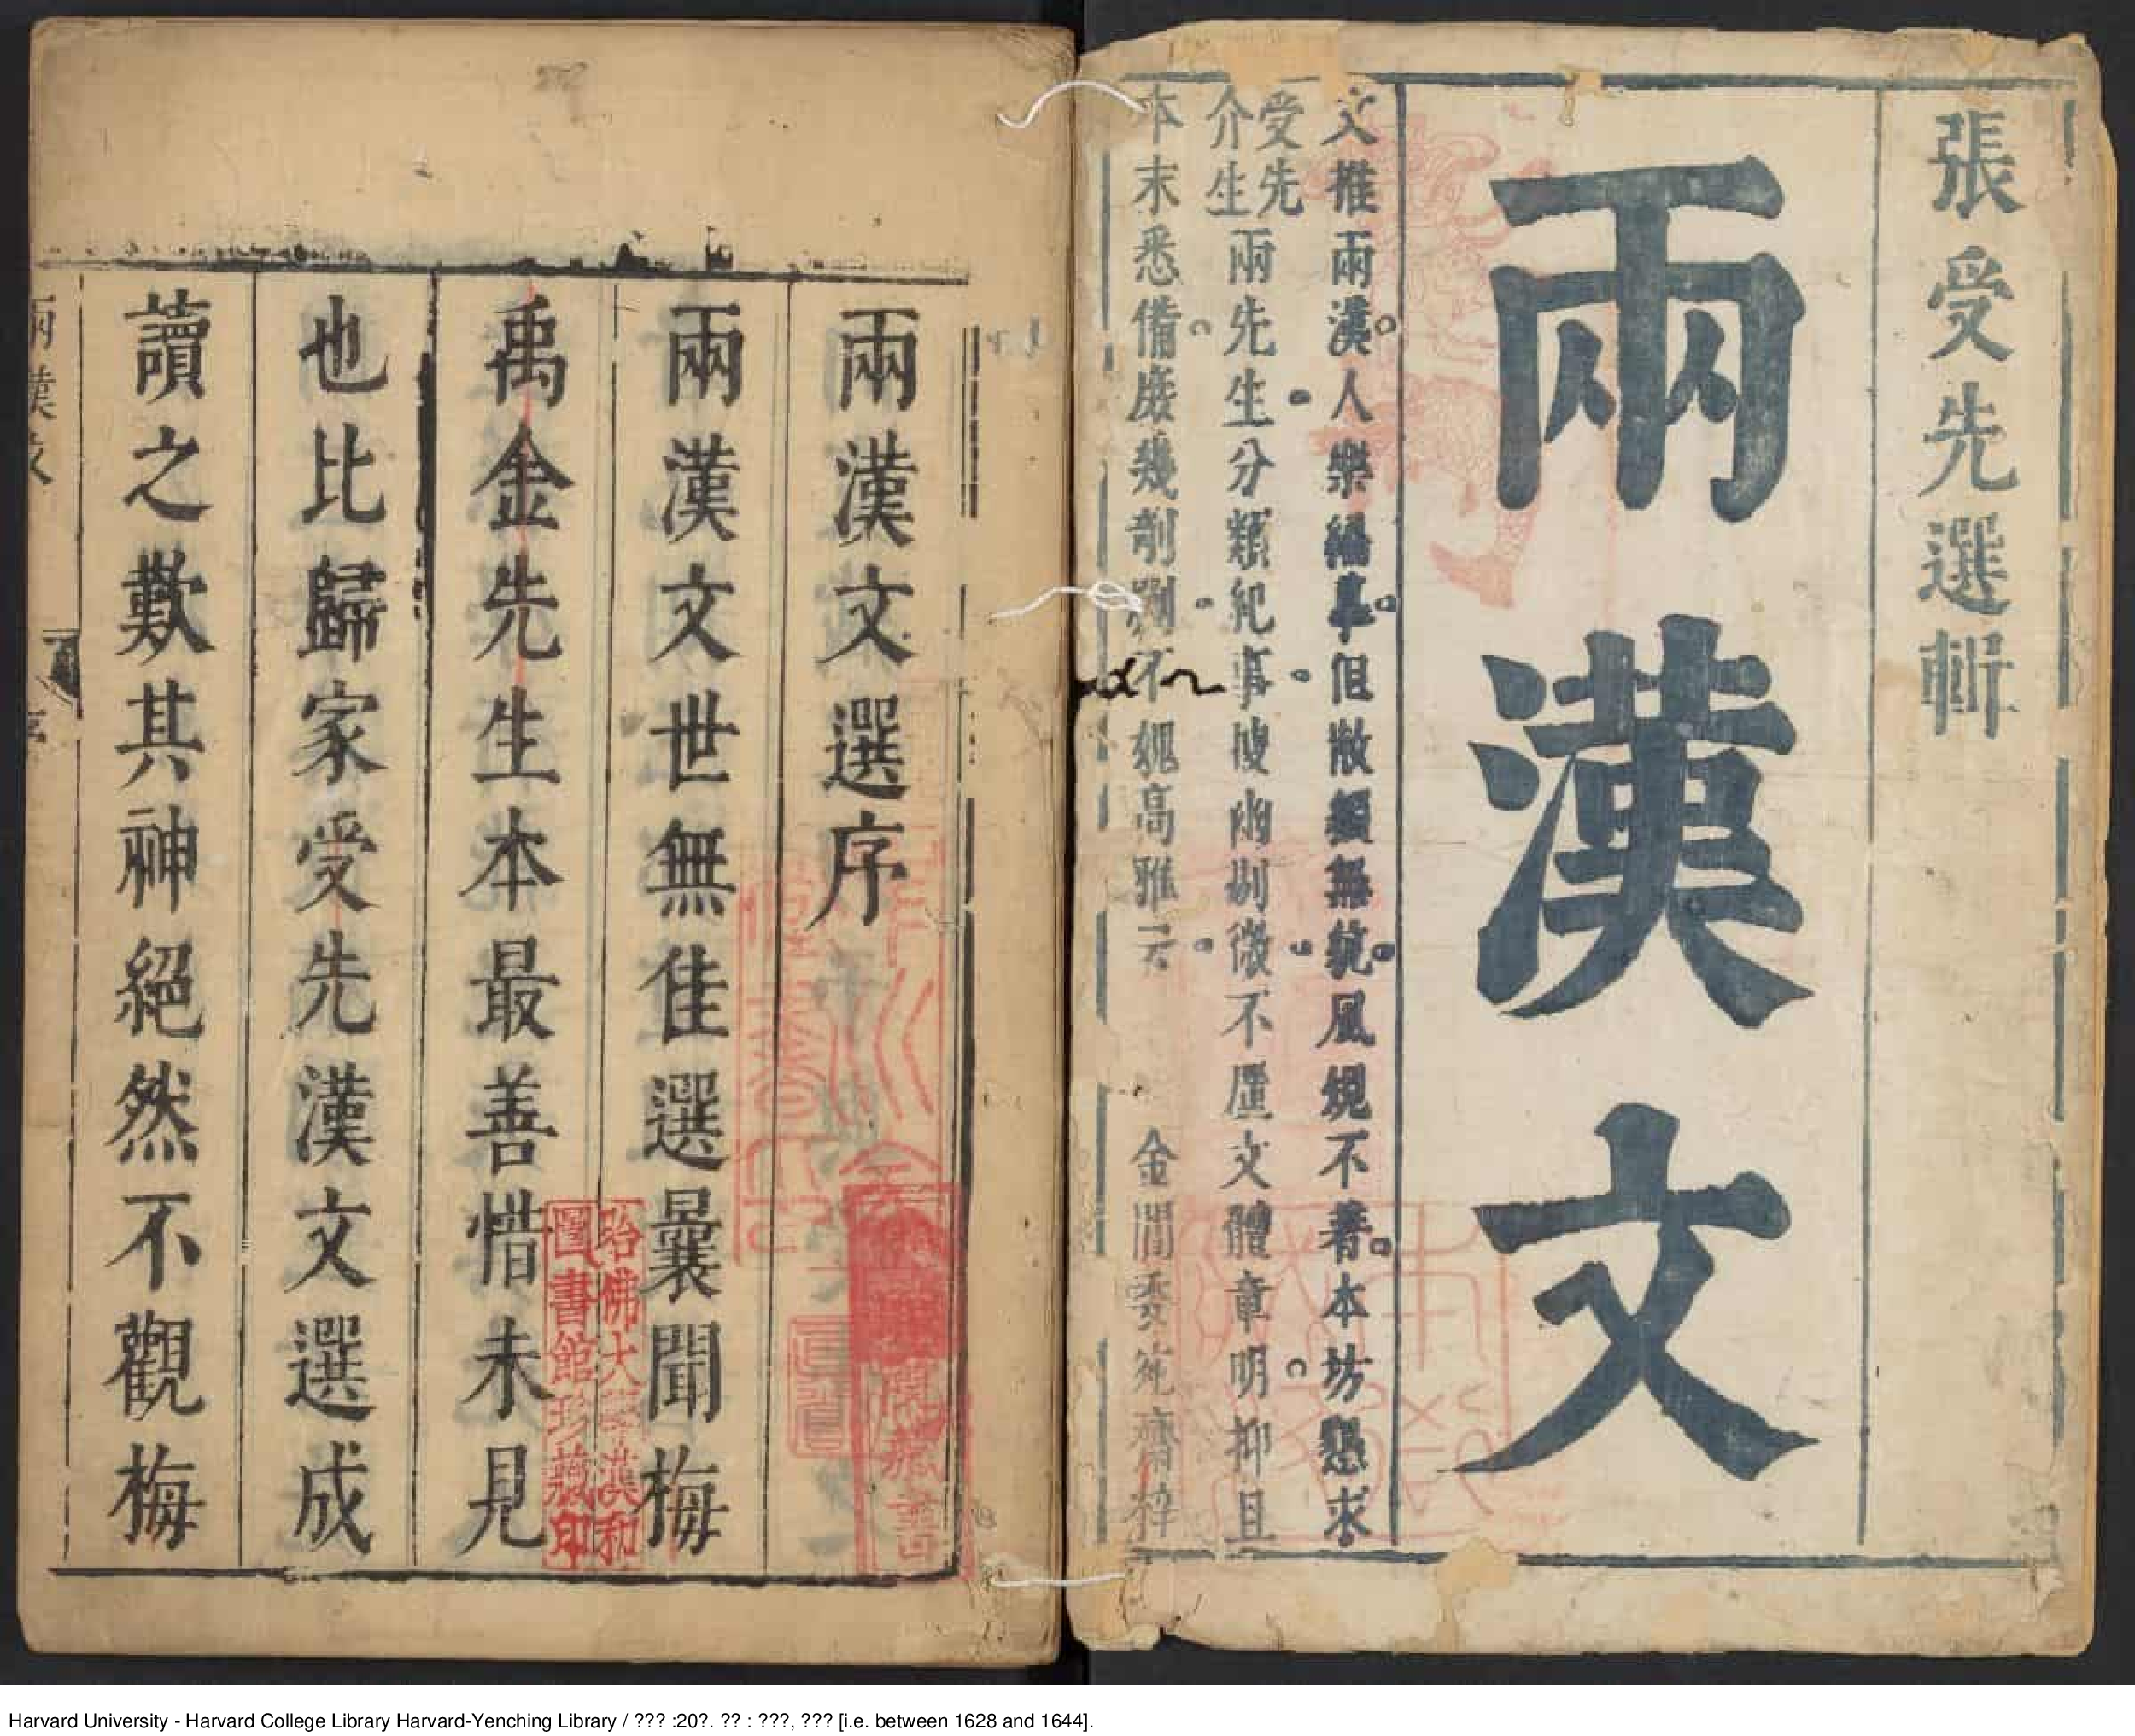 張受先選輯
兩漢文
文推兩漢人樂編摹但散纇無統風規不著本坊懇求
受先
介生
兩先生分類紀事搜幽剔微不厪文體章明抑且
本末悉備庶幾剞劂不媿高雅云 金閶委宛齋梓
兩漢文選序
兩漢文世無佳選曩聞梅
禹金先生本最善惜未見
也比歸家受先漢文選成
讀之歎其神絕然不觀梅
兩漢文
序
哈佛大學漢和
圖書館珍藏印
Harvard University - Harvard College Library Harvard-Yenching Library / ??? :20?. ?? : ???, ??? [i.e. between 1628 and 1644].